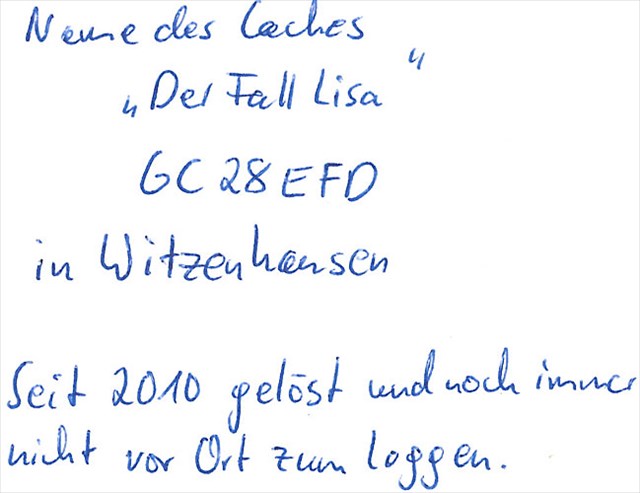 Name des Caches
„Der Fall Lisa“
GC28EFD
in Witzenhausen
Seit 2010 gelöst und noch immer
nicht vor Ort zum loggen.